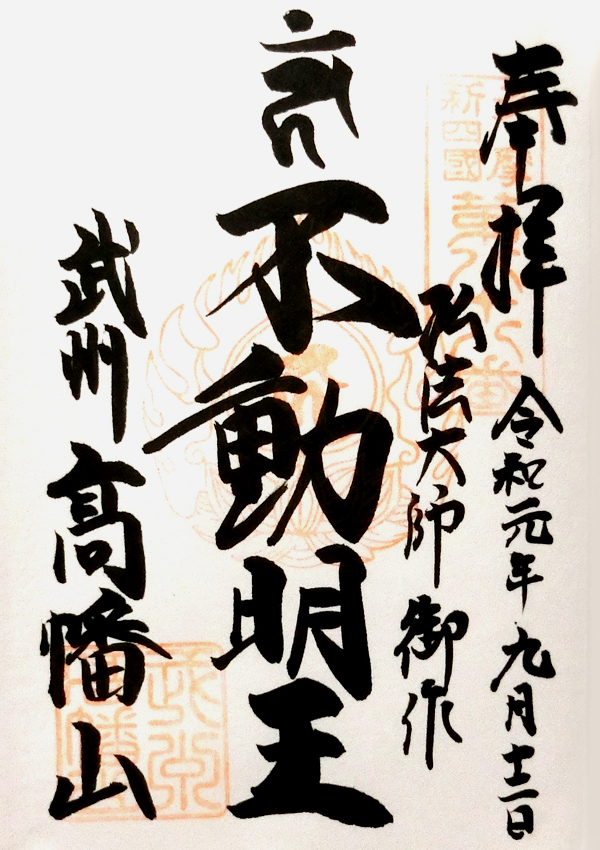 奉拝 令和元年九月十二日
弘法大師 御作
不動明王
武州 高幡山
新四國